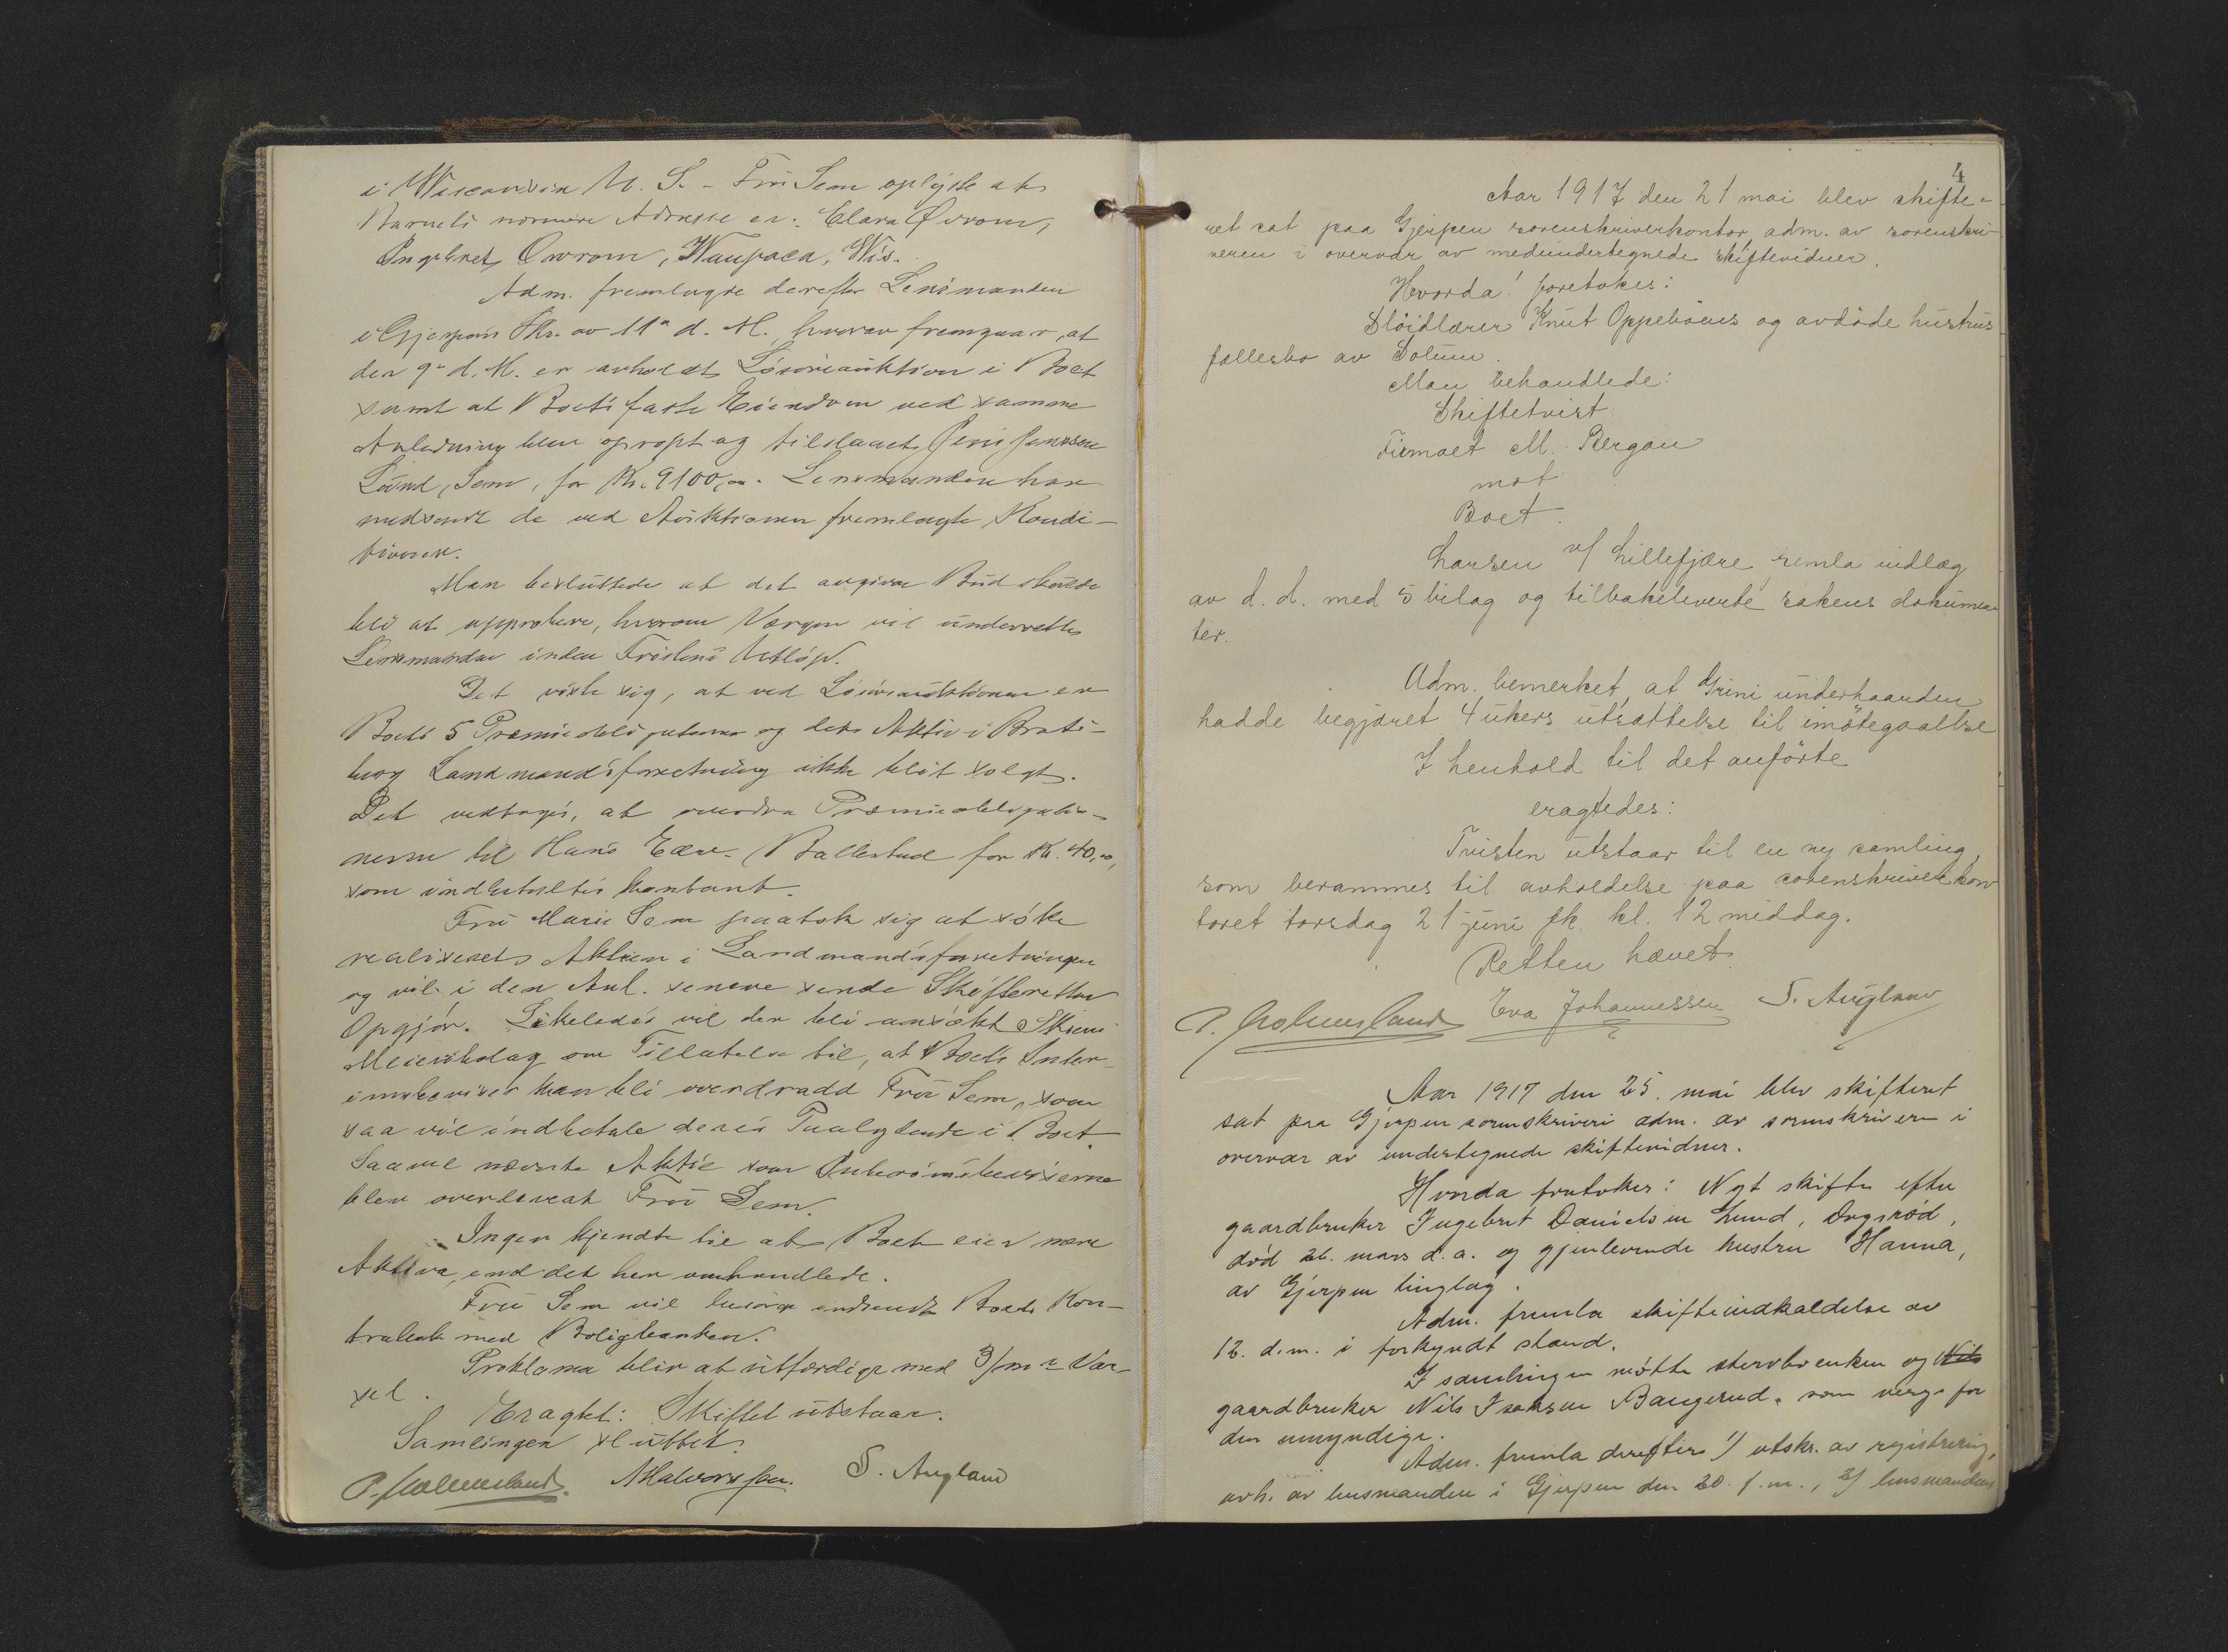 i Wisconsin U. S. - Fru Sem oplyste at
Barnets nærmere Adresse er: Clara Øvrom,
Ingebret Ovrom, Waupaca, Wis.
Adm. fremlagde derefter Lensmanden
i Gjerpens Skr. av 11te d. M. hvorav fremgaar, at
den 9de d. M. er avholdt Løsøreauktion i Boet
samt at Boets faste Eiendom ved samme
Anledning blev opropt og tilslaaet Jens Jenssen
Lund, Sem, for Kr. 9100,00. Lensmanden har
medsendt de ved Auktionen fremlagte Kondi-
tioner.
Man besluttede at det avgivne Bud skulde
bli at approbere, hvorom Værgen vil underrette
Lensmanden inden Fristens Utløp.
Det viste sig, at ved Løsøreauktionen er
Boets 5 Præmieobligationer og dets Aktie i Brats-
berg Landmandsforretning ikke blit solgt.
Det vedtoges, at overdra Præmieobligatio-
nerne til Hans Ballestad for Kr. 40,00,
som indbetaltes kontant.
Fru Marie Sem paatok sig at søke
realiseret Aktien i Landmandsforretningen
og vil i den Anl. senere sende Skifteretten
Opgjør. Likeledes vil der bli ansøkt Skiens
Meieribolag om Tillatelse til, at Boets Inter-
imsbeviser kan bli overdradd Fru Sem, som
saa vil indbetale deres Paalydende i Boet.
Saavel nævnte Aktie som Interimsbeviserne
blev overleveret Fru Sem.
Ingen kjendte til at Boet eier mere
Aktiva, end det her omhandlede.
Fru Sem vil besørge indsendt Boets Kon-
trabok med Boligbanken.
Proklama blir at utfærdige med 3/m rs Var-
sel.
Eragtet: Skiftet utstaar.
Samlingen sluttet.
P. Holmesland. AHalvorssen. S. Augland
4
Aar 1917 den 21 mai blev skifte-
ret sat paa Gjerpen sorenskriverkontor, adm. av sorenskri-
veren i overvær av medundertegnede skiftevidner.
Hvorda! foretokes:
Sløidlærer Knut Oppebøens og avdøde hustrus
fællesbo av Solum.
Man behandlede:
Skiftetvist
Firmaet M. Bergan
mot
Boet.
Larsen v/ Lillefjære remla indlæg
av d. d. med 5 bilag og tilbakeleverte sakens dokumen
ter.
Adm. bemerket, at Grini underhaanden
hadde begjæret 4 ukers utsættelse til imøtegaaelse
I henhold til det anførte
eragtedes:
Tvisten utstaar til en ny samling,
som berammes til avholdelse paa sorenskriverkon
toret torsdag 21 juni fk. kl. 12 middag.
Retten hævet
P. Holmesland Eva Johannessen S. Augland
Aar 1917 den 25. mai blev skifteret
sat paa Gjerpen sorenskriveri adm. av sorenskriveren i
overvær av undertegnede skiftevidner.
Hvorda foretokes: Nyt skifte efter
gaardbruker Ingebret Danielsen Lund,
død 26. mars d. a. og gjenlevende hustru Hanna,
av Gjerpen tinglag.
Adm. fremla skifteindkaldelse av
12. d. m. i forkyndt stand.
I samlingen møtte stervboenken og Nils
gaardbruker Nils Isaksen Baugerud, som verge for
den umyndige.
Adm. fremla dereftire 1/ utskr. av registrering,
avh. av lensmanden i Gjerpen den 20. f. m., 2/ lensmandens